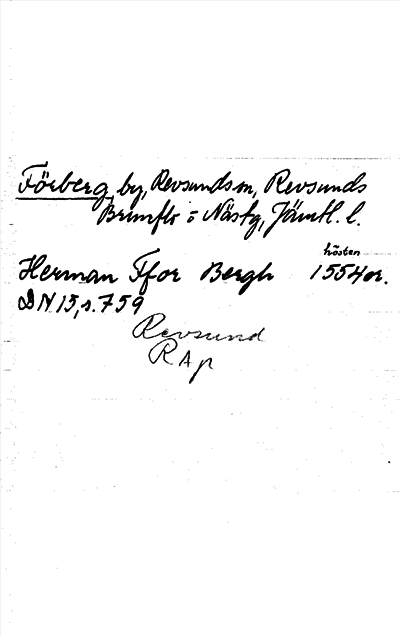 Förberg, by, Revsunds sn, Revsunds
Brunflo o Näskg, Jämtl. l.
hösten
Herman Ffor Bergh 1554 or.
DN 15, s. 759
Revsund
R A p